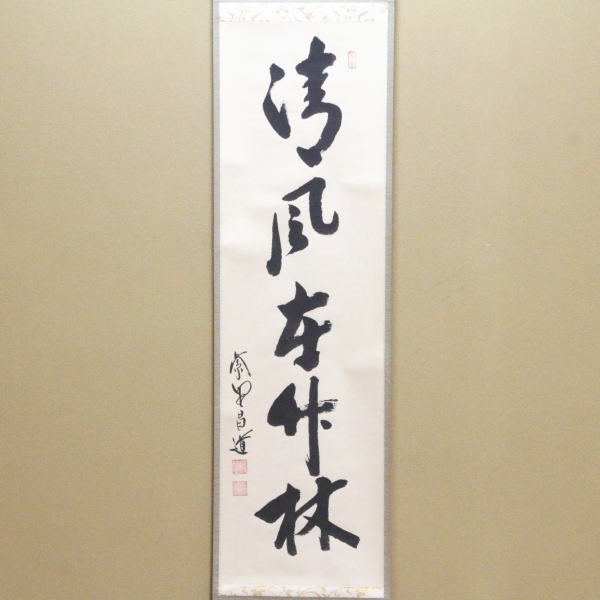 清風在竹林
紫野昌道